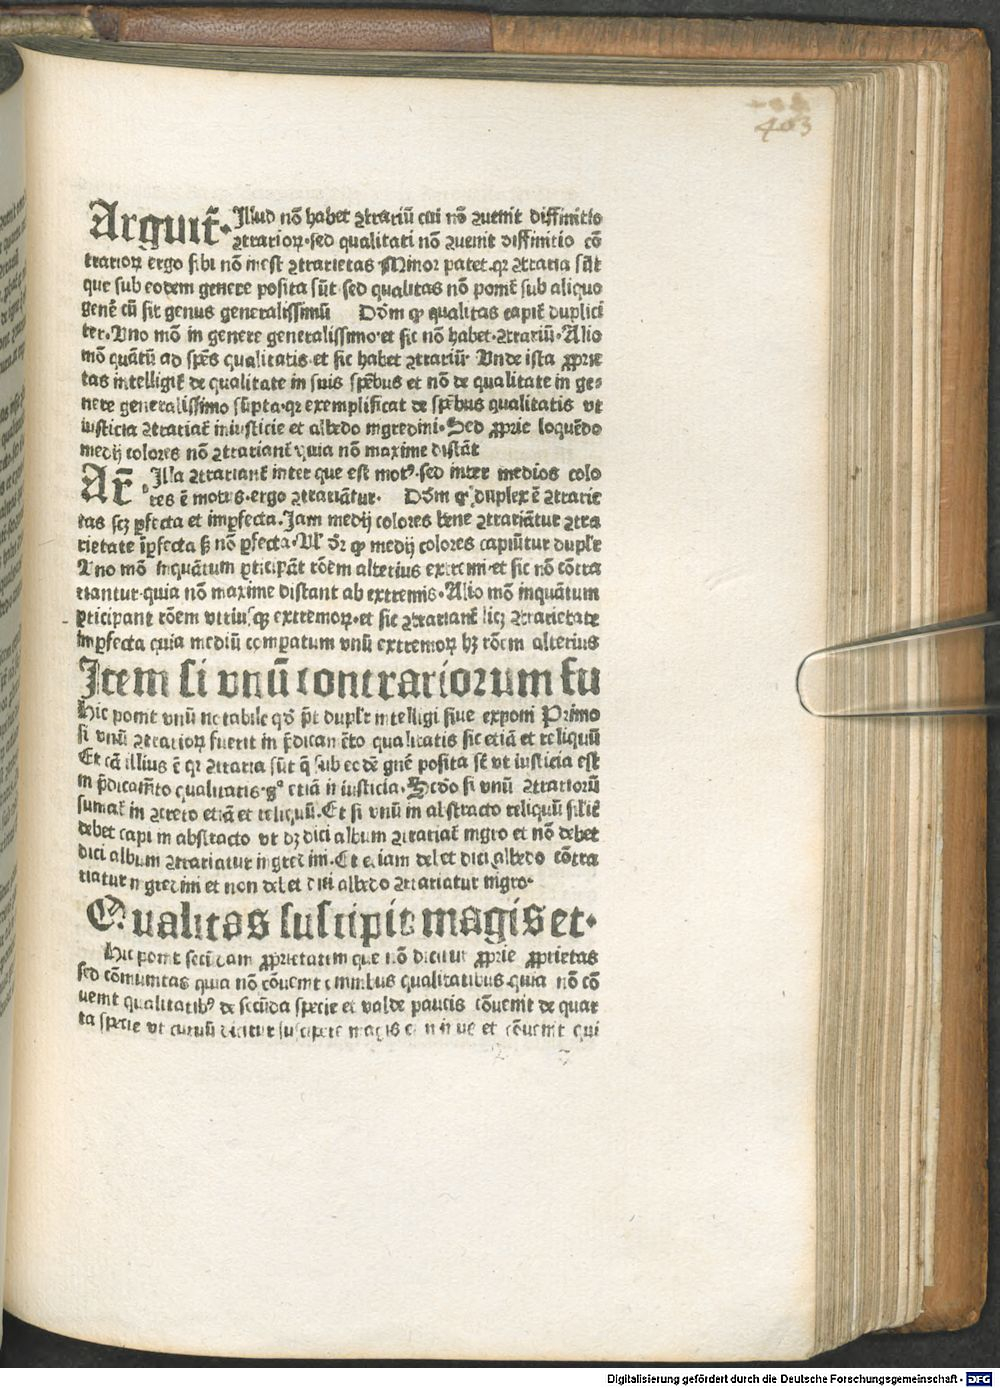 403
Arguit̃. Illud nō habet ꝯtrariū cui nō ꝯuenit diffinitio
ꝯtrarioꝝ·sed qualitati nō ꝯuenit diffinitio cō
trarioꝝ ergo sibi nō inest ꝯtrarietas Minor patet·qꝛ ꝯtraria sūt
que sub eodem genere posita sūt sed qualitas nō ponit̃ sub aliquo
genē cū sit genus generalissimū Dōm ꝙ qualitas capit̃ duplici
ter·Uno mō in genere generalissimo·et sic nō habet·ꝯtrariū·Alio
mō quātū ad spēs qualitatis·et sic habet ꝯtrariū· Unde ista ꝓprie
tas intelligit̃ de qualitate in suis spēbus et nō de qualitate in ge⸗
nere generalissimo sūpta·qꝛ exemplificat de spēbus qualitatis vt
iusticia ꝯtrariat̃ iniusticie et albedo nigredini·Sed ꝓprie loquēdo
medij colores nō ꝯtrariant̃ quia nō maxime distāt
Ar̃. Illa ꝯtrariant̃ inter que est motꝰ·sed inter medios colo
res ē motus·ergo ꝯtrariātur· Dōm ꝙ duplex ē ꝯtrarie
tas scꝫ ꝑfecta et imꝑfecta·Iam medij colores bene ꝯtrariātur ꝯtra
rietate īꝑfecta sꝫ nō ꝑfecta·Ul' dr̄ ꝙ medij colores capiūtur dupl'r
Uno mō inquātum ꝑticipāt rōem alterius extremi·et sic nō cōtra
riantur·quia nō maxime distant ab extremis·Alio mō inquātum
ꝑticipant rōem vtriusqꝫ extremoꝝ·et sic ꝯtrariant̃ licꝫ ꝯtrarietate
imꝑfecta quia mediū comꝑatum vnū extremoꝝ hꝫ rōem alterius
Item si vnū contrariorum fu
Hic ponit vnū notabile qd' pōt dupl'r intelligi siue exponi Primo
si vnū ꝯtrarioꝝ fuerit in p̄dicamēto qualitatis sic etiā et reliquū
Et cā illius ē qꝛ ꝯtraria sūt q̄ sub eodē gnē posita st̄ vt iusticia est
in p̄dicamēto qualitatis·gͦ etiā iniusticia·Scdo si vnū ꝯtrariorū
sumat̃ in ꝯcreto etiā et reliquū·Et si vnū in abstracto reliquū silit̃
debet capi in abstracto vt dꝫ dici album ꝯtrariat̃ nigro et nō debet
dici album ꝯtrariatur nigredini·Et etiam debet dici albedo cōtra
riatur nigredini et non debet dici albedo ꝯtrariatur nigro·
Qualitas suscipit magis et·
Hic ponit secūdam ꝓprietatem que nō dicitur ꝓprie ꝓprietas
sed cōmunitas quia nō cōuenit omnibus qualitatibus·quia nō cō
uenit qualitatibꝰ de secūda specie et valde paucis cōuenit de quar
ta specie vt curuū dicitur suscipere magis et minus et cōuenit qui
Digitalisierung gefördert durch die Deutsche Forschungsgemeinschaft - DFG